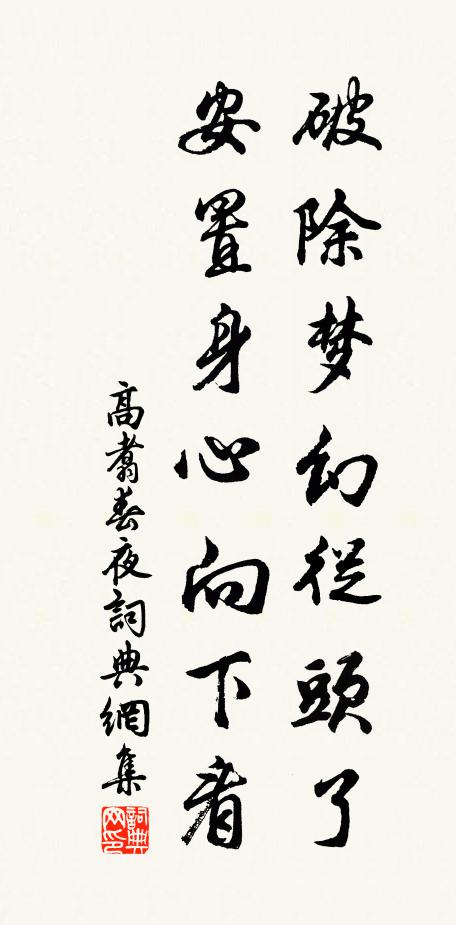 破除梦幻從頭了
安置身心向下看
高翥春夜詞典網集
詞典
网印